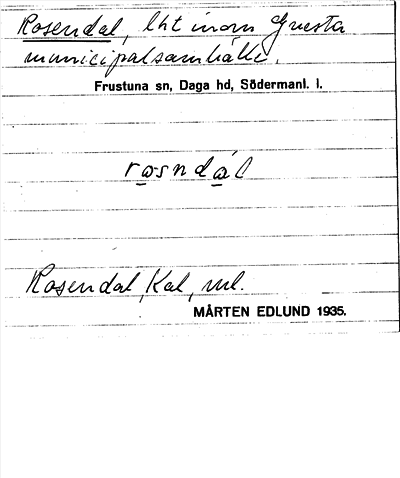 Rosendal, lht inom Gnesta
municipalsamhälle.
Frustuna sn, Daga hd, Södermanl. l.
rosndál
Rosendal, Kal, ml.
MÅRTEN EDLUND 1935.